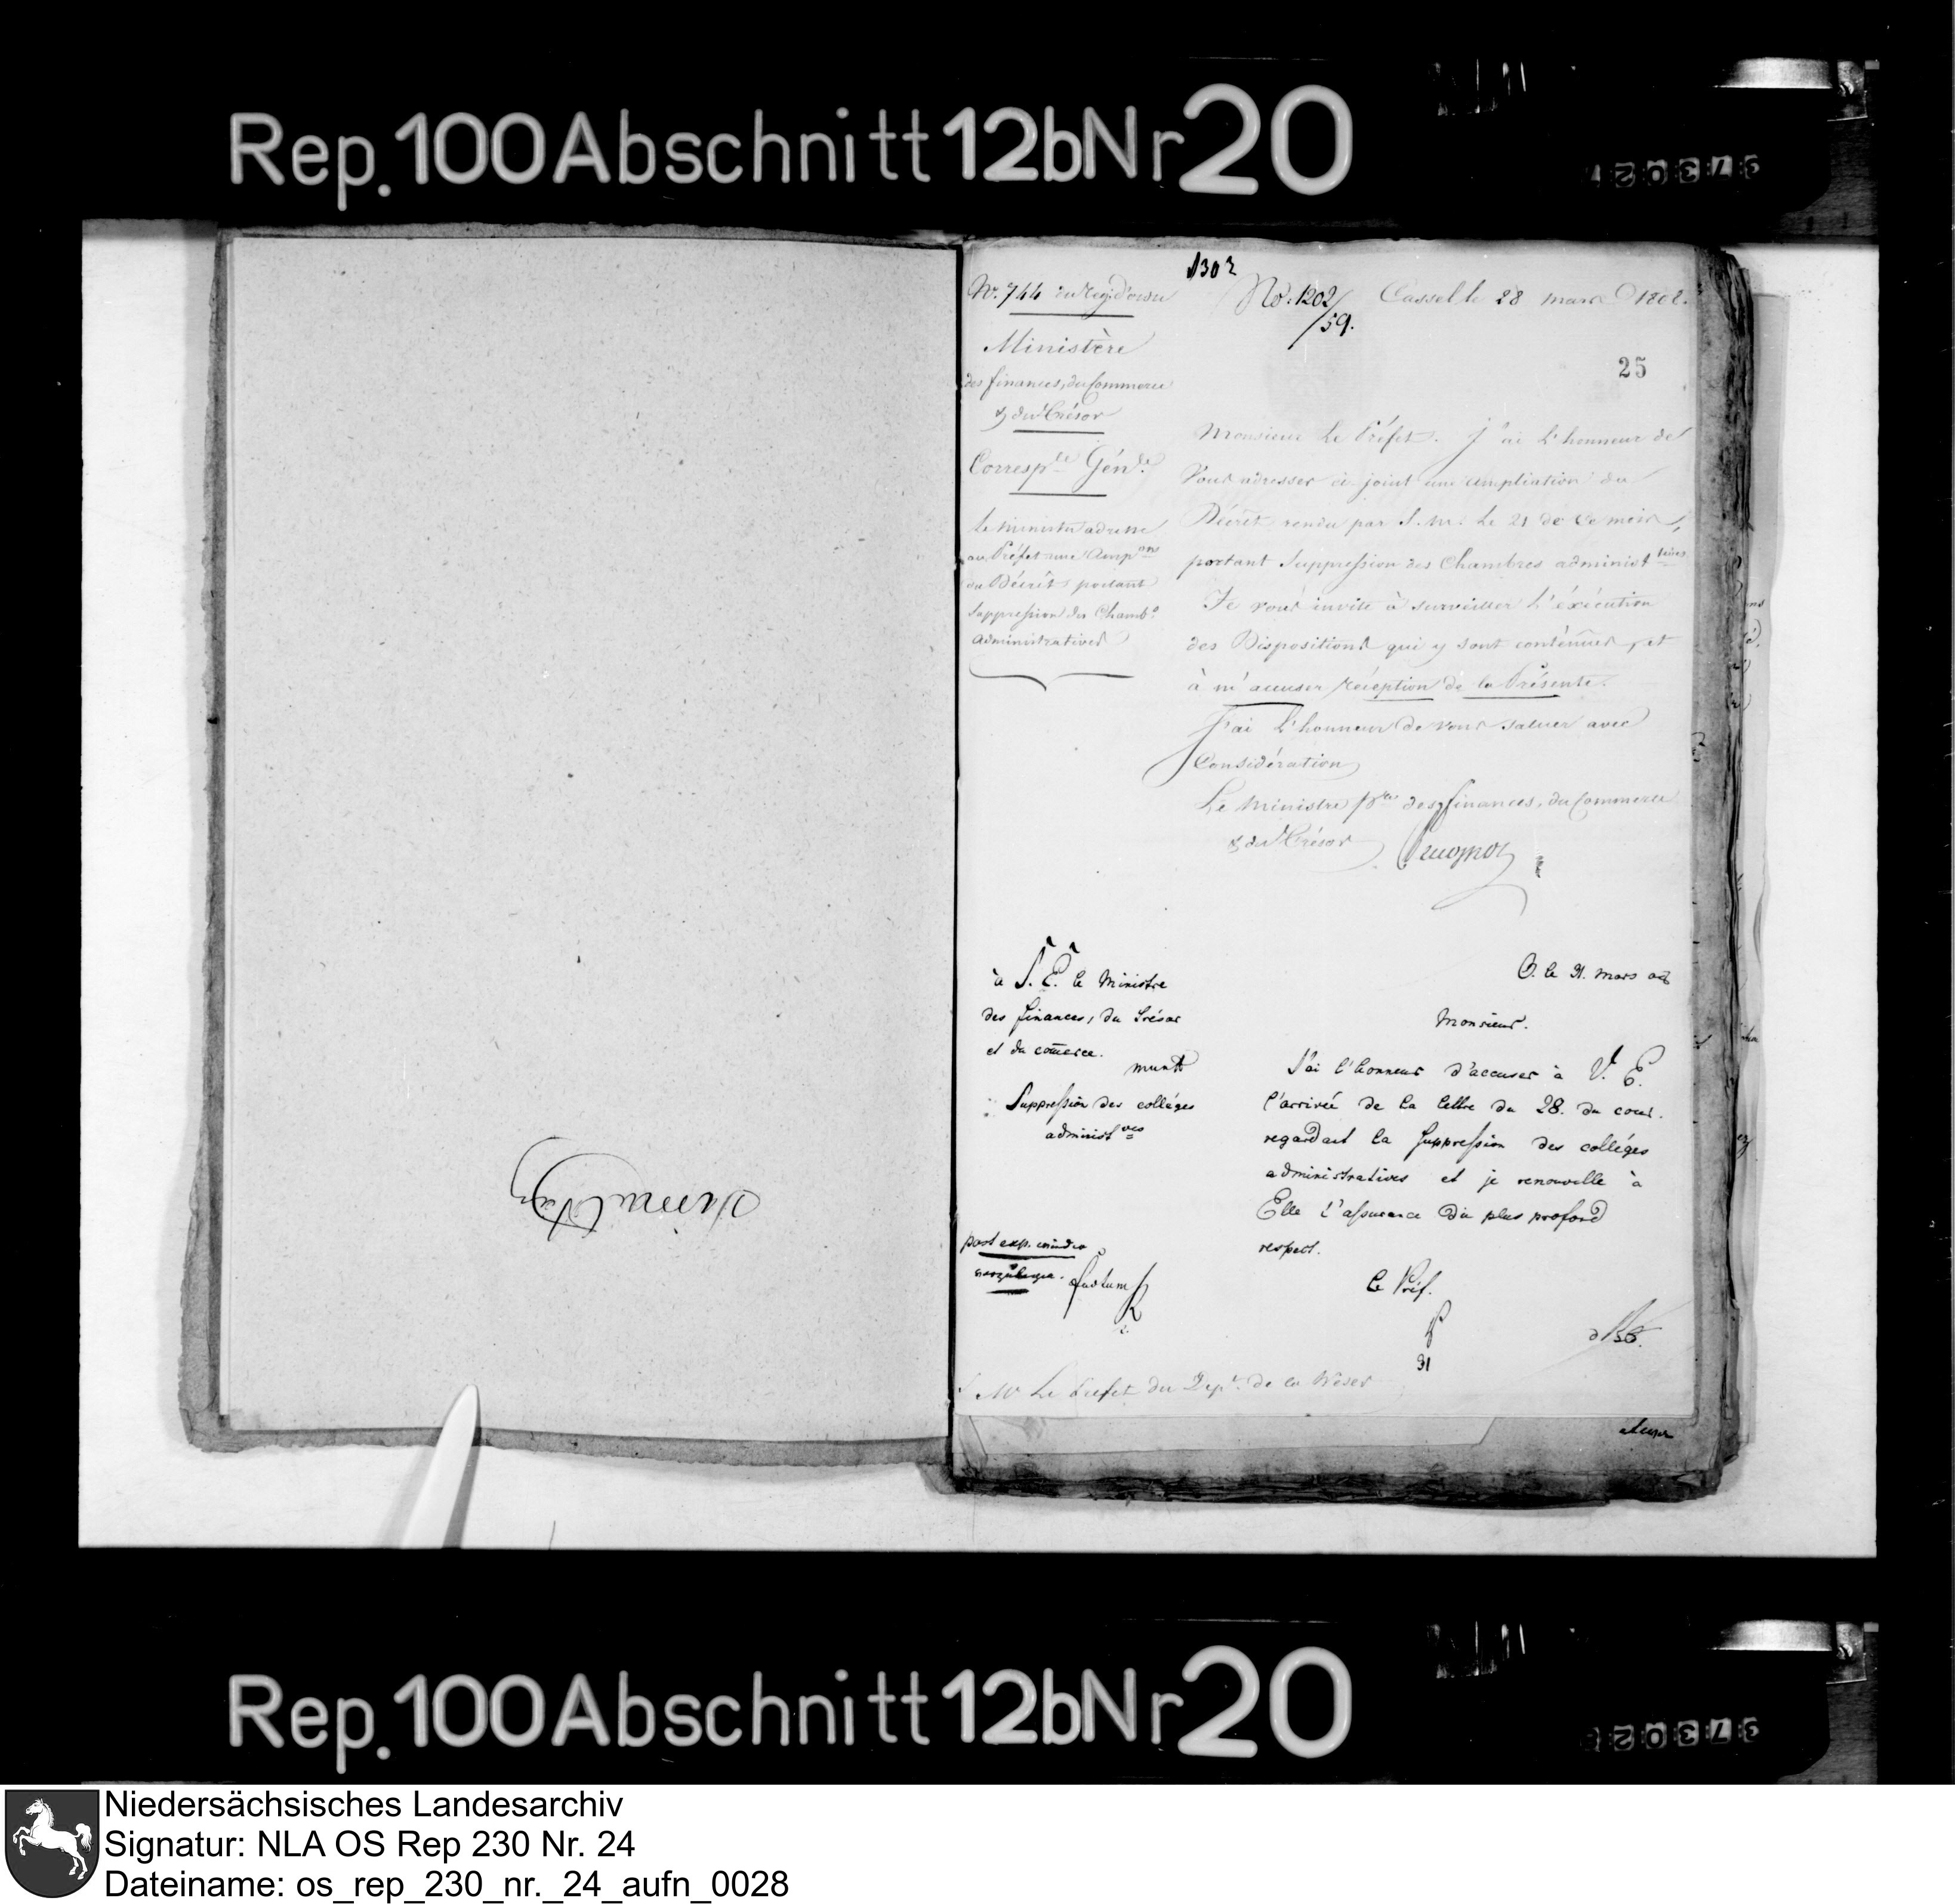 Rep. 100 Abschnitt 12b Nr 20
130
No. 744 du reg. d'ordre
No. 1202/59.
Cassel le 28 mars 1808.
25
Ministère
des finances, du Commerce
& du Trésor
Corresp.ce Gén.le
le ministre adresse
au Préfet une Amp.on
du Décrêt portant
Suppression des Chamb.s
administratives
Monsieur le Préfet. J'ai l'honneur de
Vous adresser ci-joint une ampliation du
Décrêt rendu par S. M. le 21 de ce mois,
portant Suppression des Chambres administ.tives
Je vous invite à surveiller l'éxécution
des Dispositions qui y sont contenües, et
à m'accuser réception de la Présente.
J'ai l'honneur de vous saluer avec
Considération
Le Ministre p.re des finances, du Commerce
& du Trésor
à S. E. le Ministre
des finances, du Trésor
et du com̄erce.
mundt
Suppression des colléges
administ.ves
post exp.
C. le 31. mars 08
Monsieur.
J'ai l'honneur d'accuser à V. E.
l'arrivée de la lettre du 28. du cour.
regardant la suppression des colléges
administratives et je renouvelle à
Elle l'assurance du plus profond
respect.
Le Préf.
31
Mr Le Prefet du Dep.t de la Weser
Rep. 100 Abschnitt 12b Nr 20
Niedersächsisches Landesarchiv
Signatur: NLA OS Rep 230 Nr. 24
Dateiname: os_rep_230_nr._24_aufn_0028